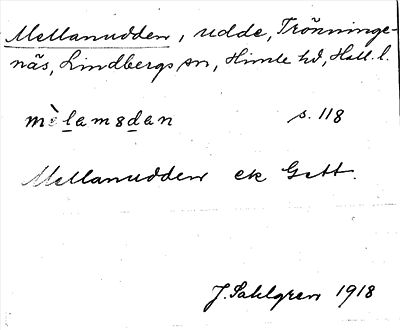 Mellanudden, udde, Trönninge-
näs, Lindbergs sn, Himle hd, Hall. l.
mèlamsdan s. 118
Mellanudden ek Gett.
J. Sahlgren 1918